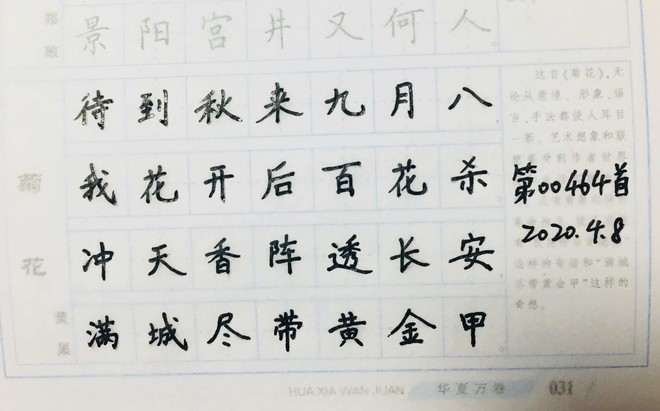 景阳宫井又何人。
待到秋来九月八
我花开后百花杀
冲天香阵透长安
满城尽带黄金甲
菊花
黄巢
这首《菊花》，无
论从意境、形象、语
言、手法都使人耳目
一新。艺术想象和联
第00464首
2020.4.8
这样的奇语和“满城
尽带黄金甲”这样的
奇想。
HUA XIA WAN JUAN 华夏万卷 031